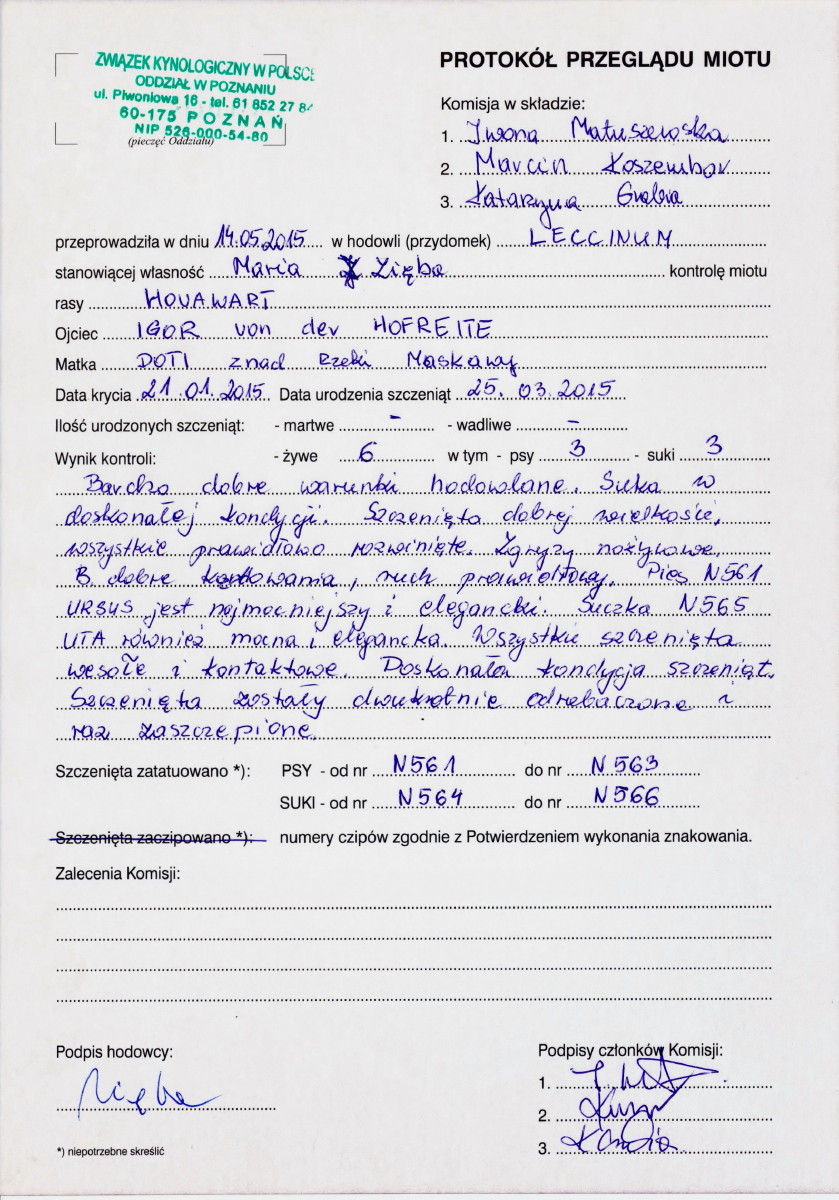 ZWIĄZEK KYNOLOGICZNY W POLSCE
ODDZIAŁ W POZNANIU
ul. Piwoniowa 16 - tel. 61 852 27 84
60-175 POZNAŃ
NIP 526-000-54-80
(pieczęć Oddziału)
PROTOKÓŁ PRZEGLĄDU MIOTU
Komisja w składzie:
1. Iwona Matuszewska
2. Marcin Koszembar
3. Katarzyna Grabia
przeprowadziła w dniu 14.05.2015 w hodowli (przydomek) LECCINUM
stanowiącej własność Maria Zięba kontrolę miotu
rasy HOVAWART
Ojciec IGOR von der HOFREITE
Matka DOTI znad Rzeki Maskawy
Data krycia 21.01.2015 Data urodzenia szczeniąt 25.03.2015
Ilość urodzonych szczeniąt: - martwe - - wadliwe -
Wynik kontroli: - żywe 6 w tym - psy 3 - suki 3
Bardzo dobre warunki hodowlane. Suka w
doskonałej kondycji. Szczenięta dobrej wielkości,
wszystkie prawidłowo rozwinięte. Zgryzy nożycowe.
B. dobre kątowania, ruch prawidłowy. Pies N561
URSUS jest najmocniejszy i elegancki. Suczka N565
UTA również mocna i elegancka. Wszystkie szczenięta
wesołe i kontaktowe. Doskonała kondycja szczeniąt.
Szczenięta zostały dwukrotnie odrobaczone i
raz zaszczepione.
Szczenięta zatatuowano *): PSY - od nr N561 do nr N563
SUKI - od nr N564 do nr N566
Szczenięta zaczipowano *): numery czipów zgodnie z Potwierdzeniem wykonania znakowania.
Zalecenia Komisji:
Podpis hodowcy:
Zięba
Podpisy członków Komisji:
1.
2.
3.
*) niepotrzebne skreślić